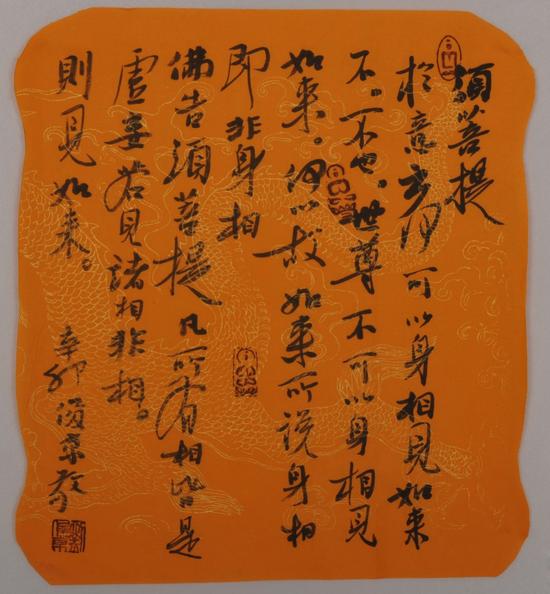 須菩提
於意云何可以身相見如來
不。不也。世尊不可以身相見
如來。何以故如來所說身相
即非身相
佛告須菩提凡所有相皆是
虛妄若見諸相非相。
則見如來。
辛卯京敬